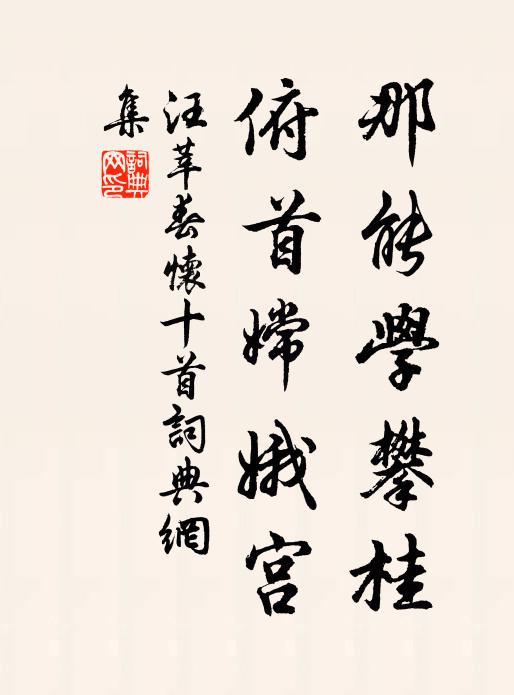 那能學攀桂
俯首嫦娥宫
汪莘春懷十首詞典網
集
詞典網印